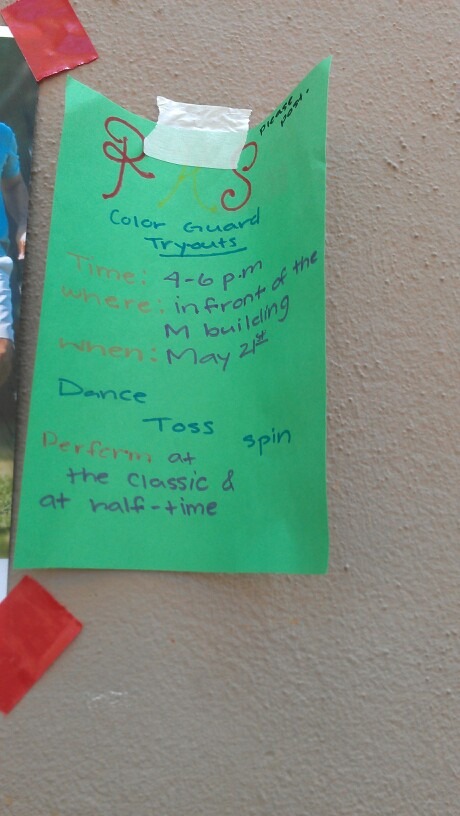 please
post.
R S
Color Guard
Tryouts
Time: 4-6 p.m
where: in front of the
M building
when: May 21st
Dance
Toss
spin
Perform at
the classic &
at half-time